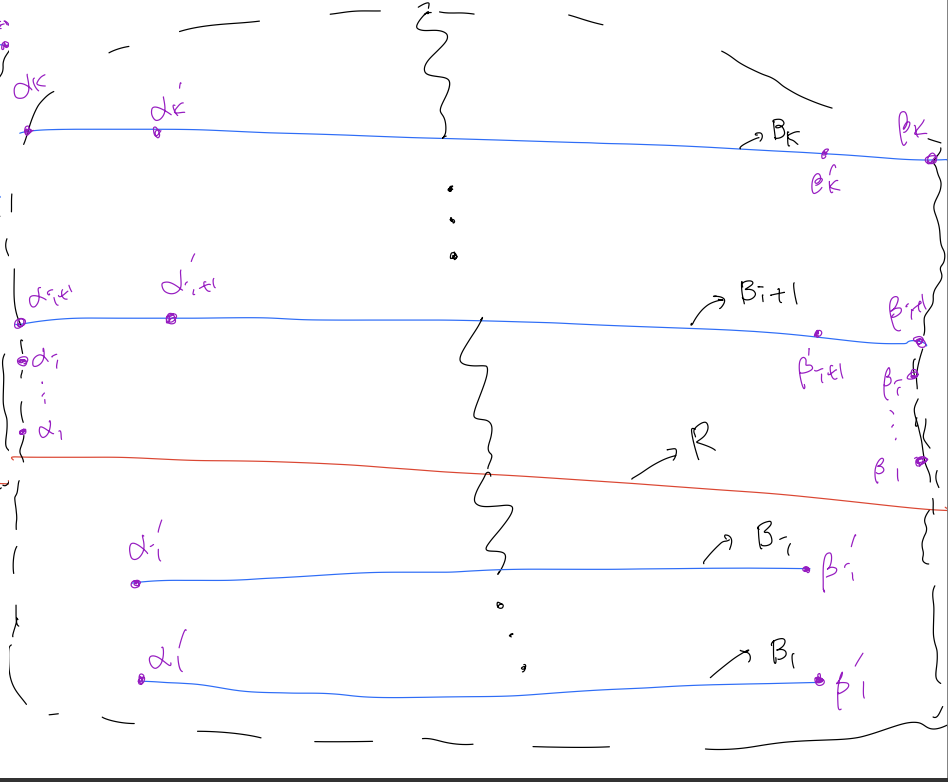 αK α'K → BK βK
β'K
αi+1 α'i+1 → Bi+1 βi+1
αi β'i+1 βi
⋮ ⋮
α1 → R β1
α'i → Bi β'i
α'1 → B1 β'1